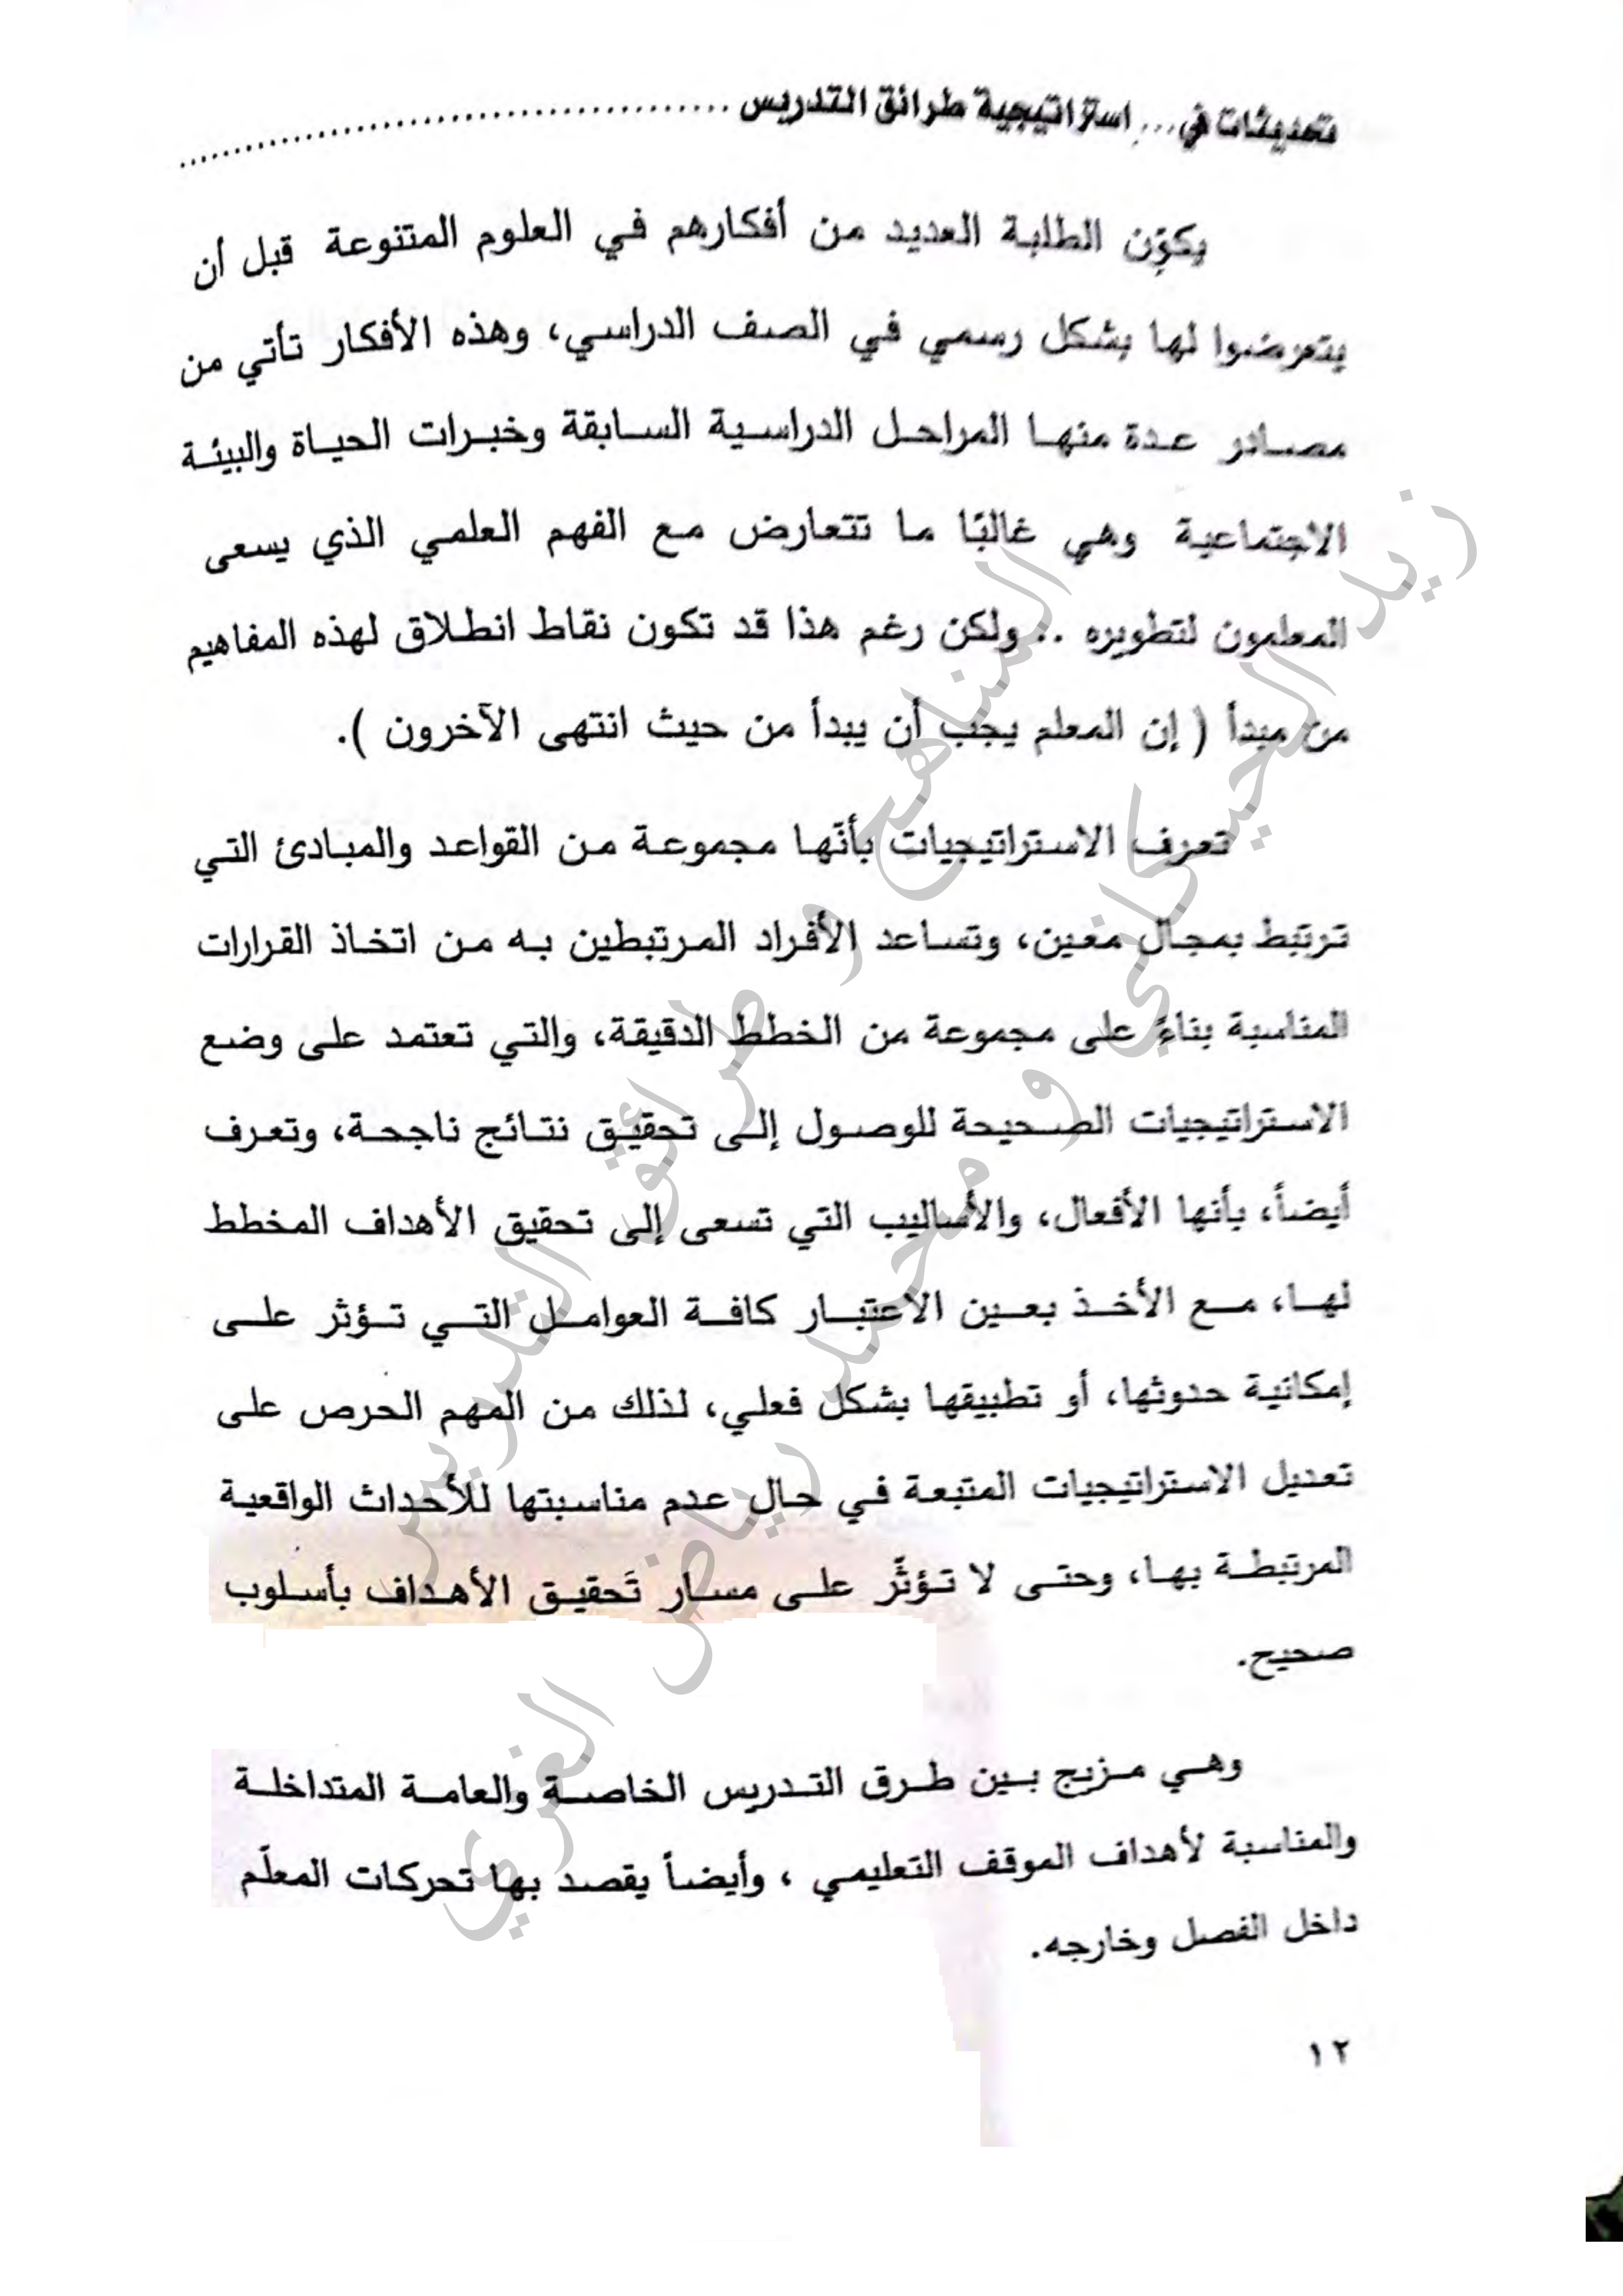 تحديثات في... استراتيجية طرائق التدريس
يكوّن الطلبة العديد من أفكارهم في العلوم المتنوعة قبل أن
يتعرضوا لها بشكل رسمي في الصف الدراسي، وهذه الأفكار تأتي من
مصادر عدة منها المراحل الدراسية السابقة وخبرات الحياة والبيئة
الاجتماعية وهي غالبًا ما تتعارض مع الفهم العلمي الذي يسعى
المعلمون لتطويره .. ولكن رغم هذا قد تكون نقاط انطلاق لهذه المفاهيم
من مبدأ ( إن المعلم يجب أن يبدأ من حيث انتهى الآخرون ).
تعرف الاستراتيجيات بأنّها مجموعة من القواعد والمبادئ التي
ترتبط بمجال معين، وتساعد الأفراد المرتبطين به من اتخاذ القرارات
المناسبة بناءً على مجموعة من الخطط الدقيقة، والتي تعتمد على وضع
الاستراتيجيات الصحيحة للوصول إلى تحقيق نتائج ناجحة، وتعرف
أيضاً، بأنها الأفعال، والأساليب التي تسعى إلى تحقيق الأهداف المخطط
لها، مع الأخذ بعين الاعتبار كافة العوامل التي تؤثر على
إمكانية حدوثها، أو تطبيقها بشكل فعلي، لذلك من المهم الحرص على
تعديل الاستراتيجيات المتبعة في حال عدم مناسبتها للأحداث الواقعية
المرتبطة بها، وحتى لا تؤثّر على مسار تَحقيق الأهداف بأسلوب
صحيح.
وهي مزيج بين طرق التدريس الخاصة والعامة المتداخلة
والمناسبة لأهداف الموقف التعليمي ، وأيضاً يقصد بها تحركات المعلّم
داخل الفصل وخارجه.
١٢
المناهج و طرائق التدريس
زيد الحيكاني و محمد رياض الغري